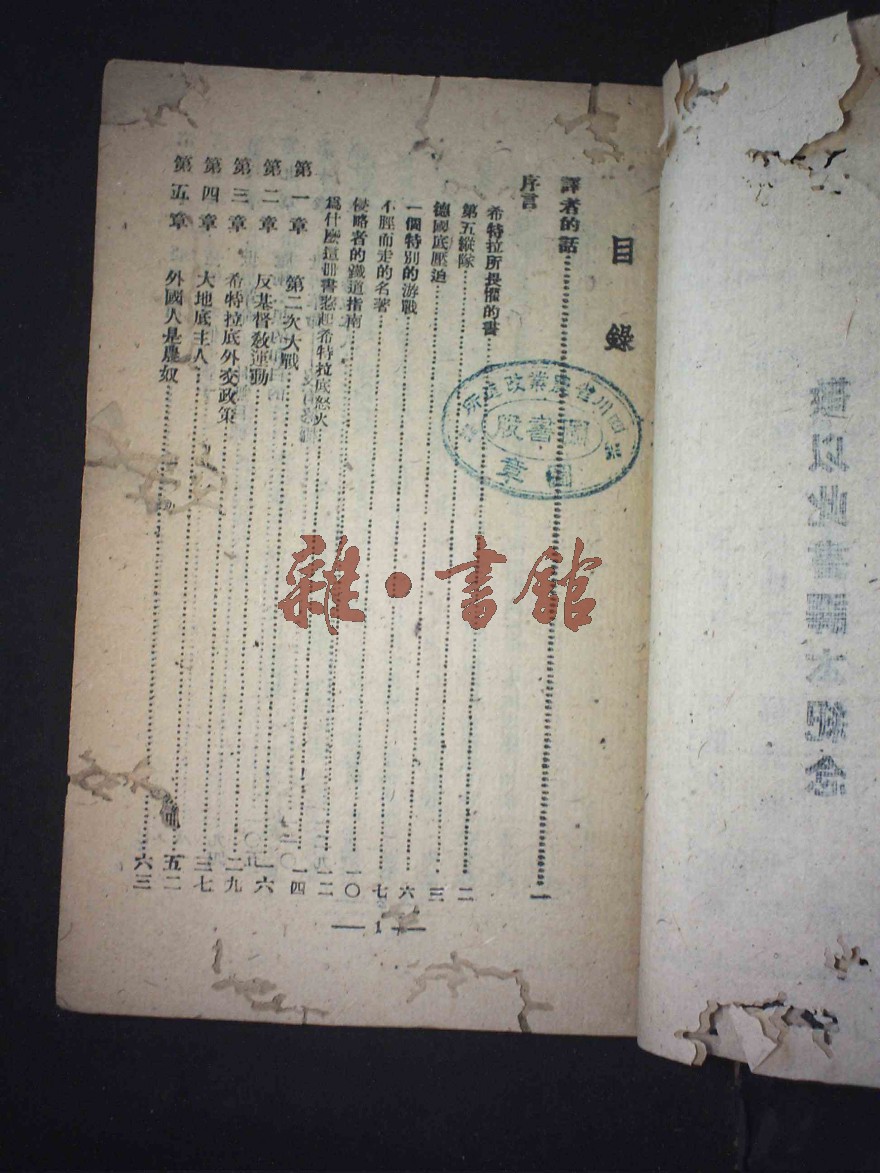 目錄
譯者的話……一
序言
希特拉所畏懼的書……二
第五縱隊……三
德國底壓迫……六
一個特別的游戰……七
不脛而走的名著……一〇
侵略者的鐵道指南……一二
爲什麼這冊書惹起希特拉底怒火……一四
第一章 第二次大戰……一六
第二章 反基督敎運動……二九
第三章 希特拉底外交政策……三七
第四章 大地底主人……五二
第五章 外國人是農奴……六三
— 1 —
四川省農業改進所
圖書股
圖章
雜·書館